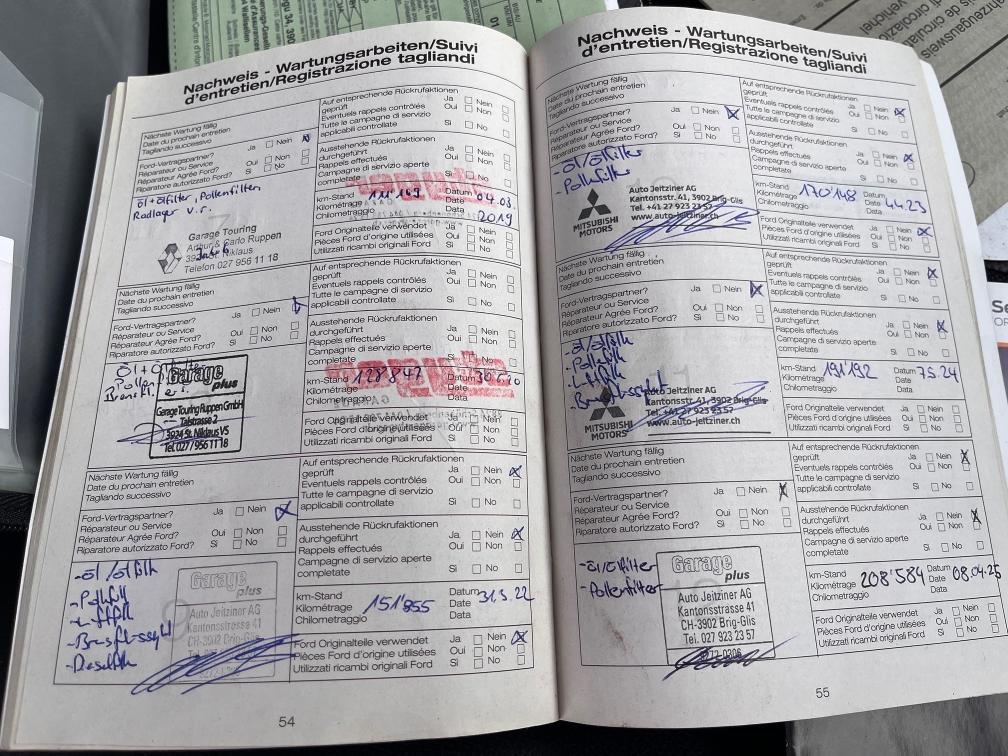 Nachweis - Wartungsarbeiten/Suivi
d'entretien/Registrazione tagliandi
Nächste Wartung fällig
Date du prochain entretien
Tagliando successivo
Ford-Vertragspartner? Ja Nein
Réparateur ou Service
Réparateur Agrée Ford? Oui Non
Riparatore autorizzato Ford? Sì No
öl+ölfilter, Pollenfilter
Radlager v.r.
Garage Touring
Arthur & Carlo Ruppen
Niklaus
Telefon 027 956 11 18
Auf entsprechende Rückrufaktionen
geprüft Ja Nein
Eventuels rappels contrôlés Oui Non
Tutte le campagne di servizio
applicabili controllate Sì No
Ausstehende Rückrufaktionen
durchgeführt Ja Nein
Rappels effectués Oui Non
Campagne di servizio aperte
completate Sì No
km-Stand Datum 04.03.
Kilométrage Date 2019
Chilometraggio Data
Ford Originalteile verwendet Ja Nein
Pièces Ford d'origine utilisées Oui Non
Utilizzati ricambi originali Ford Sì No
Nächste Wartung fällig
Date du prochain entretien
Tagliando successivo
Ford-Vertragspartner? Ja Nein
Réparateur ou Service
Réparateur Agrée Ford? Oui Non
Riparatore autorizzato Ford? Sì No
Garage
plus
Garage Touring Ruppen GmbH
Talstrasse 2
3924 St. Niklaus VS
Tel. 027 / 956 11 18
Auf entsprechende Rückrufaktionen
geprüft Ja Nein
Eventuels rappels contrôlés Oui Non
Tutte le campagne di servizio
applicabili controllate Sì No
Ausstehende Rückrufaktionen
durchgeführt Ja Nein
Rappels effectués Oui Non
Campagne di servizio aperte
completate Sì No
km-Stand 128'847 Datum
Kilométrage Date
Chilometraggio Data
Ford Originalteile verwendet Ja Nein
Pièces Ford d'origine utilisées Oui Non
Utilizzati ricambi originali Ford Sì No
Nächste Wartung fällig
Date du prochain entretien
Tagliando successivo
Ford-Vertragspartner? Ja Nein
Réparateur ou Service
Réparateur Agrée Ford? Oui Non
Riparatore autorizzato Ford? Sì No
Garage
plus
Auto Jeitziner AG
Kantonsstrasse 41
CH-3902 Brig-Glis
Tel. 027 923 23 57
Auf entsprechende Rückrufaktionen
geprüft Ja Nein
Eventuels rappels contrôlés Oui Non
Tutte le campagne di servizio
applicabili controllate Sì No
Ausstehende Rückrufaktionen
durchgeführt Ja Nein
Rappels effectués Oui Non
Campagne di servizio aperte
completate Sì No
km-Stand 151'855 Datum 31.5.22
Kilométrage Date
Chilometraggio Data
Ford Originalteile verwendet Ja Nein
Pièces Ford d'origine utilisées Oui Non
Utilizzati ricambi originali Ford Sì No
54
Nachweis - Wartungsarbeiten/Suivi
d'entretien/Registrazione tagliandi
Nächste Wartung fällig
Date du prochain entretien
Tagliando successivo
Ford-Vertragspartner? Ja Nein
Réparateur ou Service
Réparateur Agrée Ford? Oui Non
Riparatore autorizzato Ford? Sì No
-öl/ölfilter
-Pollenfilter
MITSUBISHI
MOTORS
Auto Jeitziner AG
Kantonsstr. 41, 3902 Brig-Glis
Tel. +41 27 923 23 57
www.auto-jeitziner.ch
Auf entsprechende Rückrufaktionen
geprüft Ja Nein
Eventuels rappels contrôlés Oui Non
Tutte le campagne di servizio
applicabili controllate Sì No
Ausstehende Rückrufaktionen
durchgeführt Ja Nein
Rappels effectués Oui Non
Campagne di servizio aperte
completate Sì No
km-Stand 170'148 Datum 4.4.23
Kilométrage Date
Chilometraggio Data
Ford Originalteile verwendet Ja Nein
Pièces Ford d'origine utilisées Oui Non
Utilizzati ricambi originali Ford Sì No
Nächste Wartung fällig
Date du prochain entretien
Tagliando successivo
Ford-Vertragspartner? Ja Nein
Réparateur ou Service
Réparateur Agrée Ford? Oui Non
Riparatore autorizzato Ford? Sì No
MITSUBISHI
MOTORS
Auto Jeitziner AG
Kantonsstr. 41, 3902 Brig-Glis
Tel. +41 27 923 23 57
www.auto-jeitziner.ch
Auf entsprechende Rückrufaktionen
geprüft Ja Nein
Eventuels rappels contrôlés Oui Non
Tutte le campagne di servizio
applicabili controllate Sì No
Ausstehende Rückrufaktionen
durchgeführt Ja Nein
Rappels effectués Oui Non
Campagne di servizio aperte
completate Sì No
km-Stand 191'192 Datum 7.5.24
Kilométrage Date
Chilometraggio Data
Ford Originalteile verwendet Ja Nein
Pièces Ford d'origine utilisées Oui Non
Utilizzati ricambi originali Ford Sì No
Nächste Wartung fällig
Date du prochain entretien
Tagliando successivo
Ford-Vertragspartner? Ja Nein
Réparateur ou Service
Réparateur Agrée Ford? Oui Non
Riparatore autorizzato Ford? Sì No
-öl/ölfilter
-Pollenfilter
Garage
plus
Auto Jeitziner AG
Kantonsstrasse 41
CH-3902 Brig-Glis
Tel. 027 923 23 57
Auf entsprechende Rückrufaktionen
geprüft Ja Nein
Eventuels rappels contrôlés Oui Non
Tutte le campagne di servizio
applicabili controllate Sì No
Ausstehende Rückrufaktionen
durchgeführt Ja Nein
Rappels effectués Oui Non
Campagne di servizio aperte
completate Sì No
km-Stand 208'584 Datum 08.04.25
Kilométrage Date
Chilometraggio Data
Ford Originalteile verwendet Ja Nein
Pièces Ford d'origine utilisées Oui Non
Utilizzati ricambi originali Ford Sì No
55